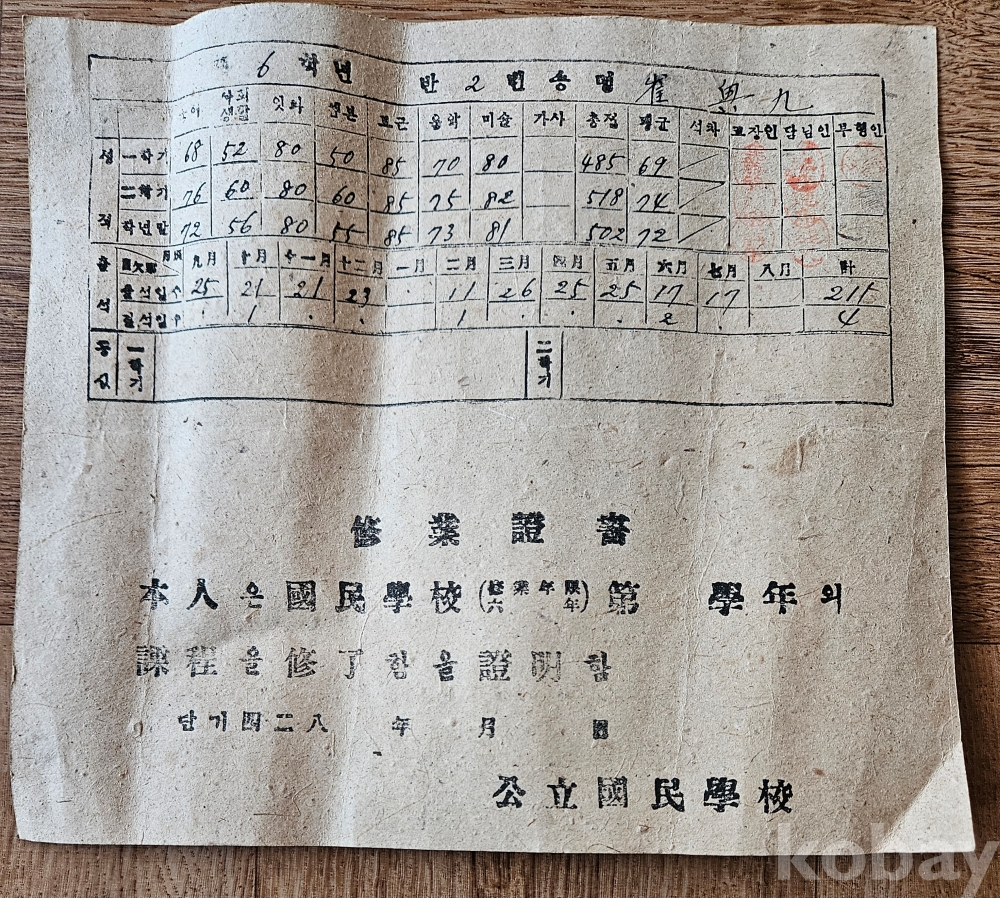 제 6 학년 반 2 번 송명 崔 興 九
국어 사회생활 잇과 산본 보근 음악 미술 가사 총점 평균 석차 교장인 담님인 부형인
성적
一학기 68 52 80 50 85 70 80 485 69
二학기 76 60 80 60 85 75 82 518 74
학년말 72 56 80 55 85 73 81 502 72
출석
月 九月 十月 十一月 十二月 一月 二月 三月 四月 五月 六月 七月 八月 計
출석일수 25 21 21 23 · 11 26 25 25 17 17 211
결석일수 · 1 · · 1 · · · 2 · 4
통신 一학기 二학기
修業證書
本人은 國民學校 (修業年限六年) 第 學年의
課程을 修了항을 證明함
단기四二八 年 月 日
公立國民學校
kobay